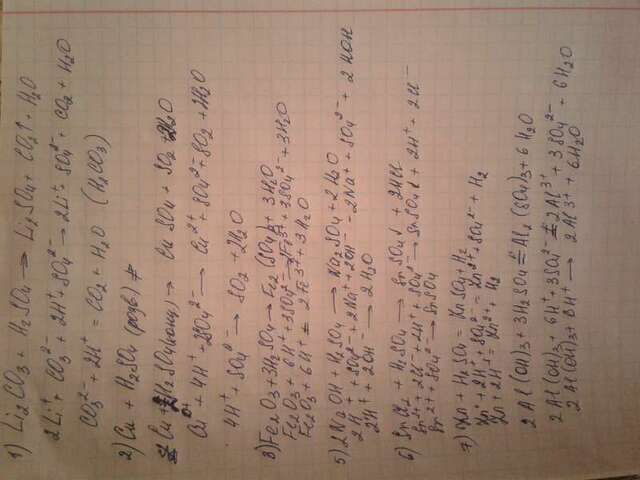 1) Li₂CO₃ + H₂SO₄ → Li₂SO₄ + CO₂↑ + H₂O
2Li⁺ + CO₃²⁻ + 2H⁺ + SO₄²⁻ → 2Li⁺ + SO₄²⁻ + CO₂ + H₂O
CO₃²⁻ + 2H⁺ = CO₂ + H₂O (H₂CO₃)
2) Cu + H₂SO₄ (разб) ≠
Cu + 2H₂SO₄(конц) → CuSO₄ + SO₂ + 2H₂O
Cu + 4H⁺ + 2SO₄²⁻ → Cu²⁺ + SO₄²⁻ + SO₂ + 2H₂O
4H⁺ + SO₄²⁻ → SO₂ + 2H₂O
3) Fe₂O₃ + 3H₂SO₄ → Fe₂(SO₄)₃ + 3H₂O
Fe₂O₃ + 6H⁺ + 3SO₄²⁻ = 2Fe³⁺ + 3SO₄²⁻ + 3H₂O
Fe₂O₃ + 6H⁺ = 2Fe³⁺ + 3H₂O
5) 2NaOH + H₂SO₄ → Na₂SO₄ + 2H₂O
2H⁺ + SO₄²⁻ + 2Na⁺ + 2OH⁻ = 2Na⁺ + SO₄²⁻ + 2HOH
2H⁺ + 2OH → 2H₂O
6) SrCl₂ + H₂SO₄ → SrSO₄↓ + 2HCl
Sr²⁺ + 2Cl⁻ + 2H⁺ + SO₄²⁻ → SrSO₄↓ + 2H⁺ + 2Cl⁻
Sr²⁺ + SO₄²⁻ → SrSO₄
7) Zn + H₂SO₄ = ZnSO₄ + H₂
Zn + 2H⁺ + SO₄²⁻ = Zn²⁺ + SO₄²⁻ + H₂
Zn + 2H⁺ = Zn²⁺ + H₂
2Al(OH)₃ + 3H₂SO₄ = Al₂(SO₄)₃ + 6H₂O
2Al(OH)₃ + 6H⁺ + 3SO₄²⁻ = 2Al³⁺ + 3SO₄²⁻ + 6H₂O
2Al(OH)₃ + 8H⁺ → 2Al³⁺ + 6H₂O